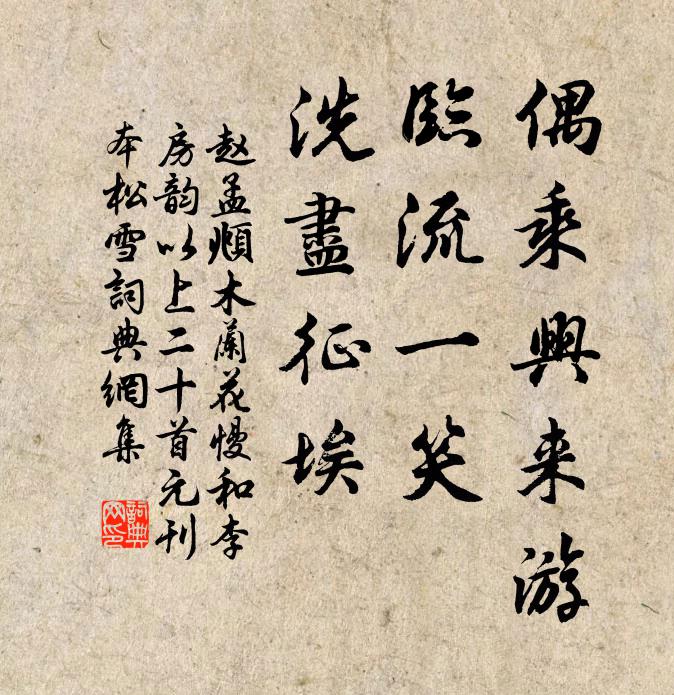 偶乘興来游
臨流一笑
洗盡征埃
赵孟頫木蘭花慢和李
房韵以上二十首元刊
本松雪詞典網集
詞典網印